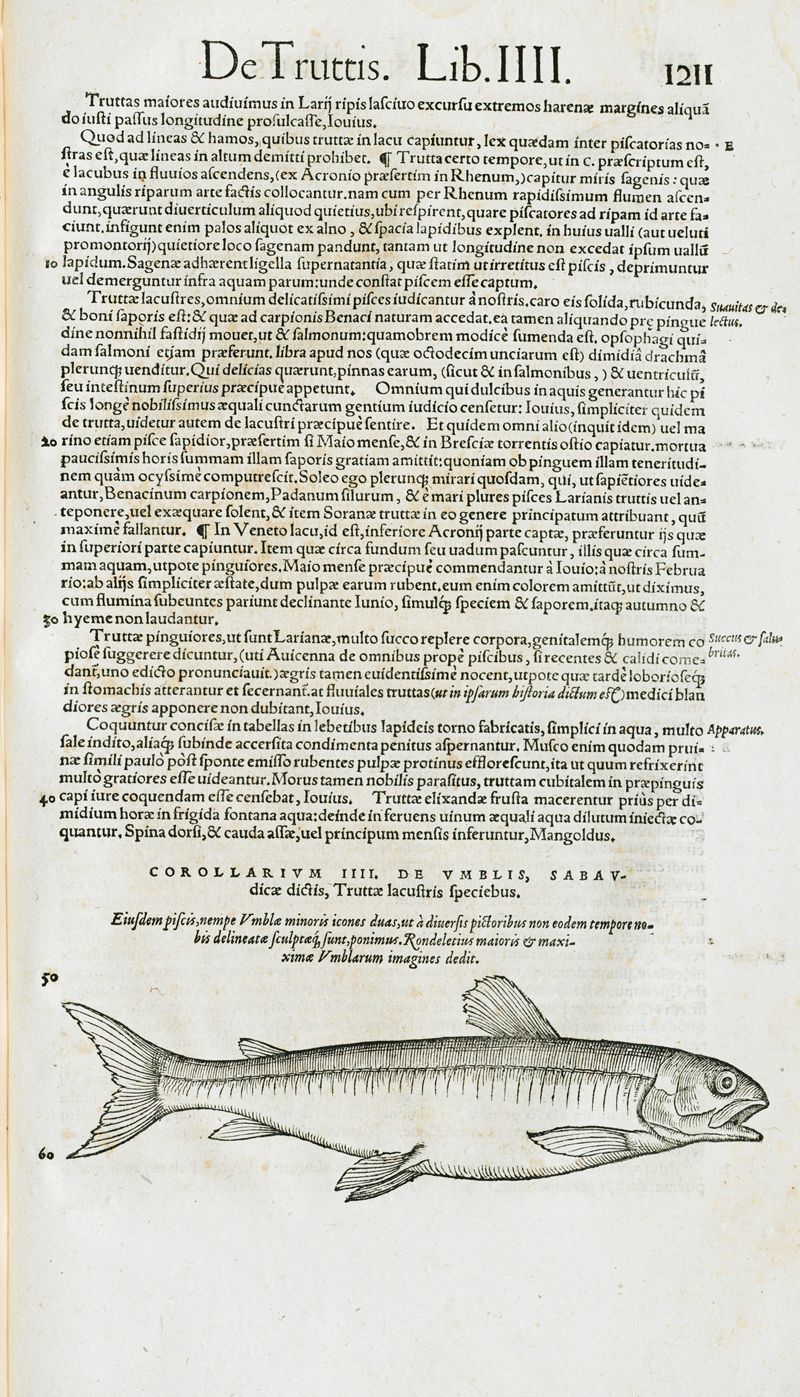 De Truttis. Lib. IIII. 1211
Truttas maiores audiuimus in Larij ripis lasciuo excursu extremos harenæ margines aliquā
do iusti passus longitudine prosulcasse, Iouius.
Quod ad lineas & hamos, quibus truttæ in lacu capiuntur, lex quædam inter piscatorias no= E
stras est, quæ lineas in altum demitti prohibet. ¶ Trutta certo tempore, ut in c. præscriptum est,
è lacubus in fluuios ascendens, (ex Acronio præsertim in Rhenum,) capitur miris sagenis: quæ
in angulis riparum arte factis collocantur. nam cum per Rhenum rapidissimum flumen ascen=
dunt, quærunt diuerticulum aliquod quietius, ubi respirent, quare piscatores ad ripam id arte fa=
ciunt. infigunt enim palos aliquot ex alno, & spacia lapidibus explent. in huius ualli (aut ueluti
promontorij) quietiore loco sagenam pandunt, tantam ut longitudine non excedat ipsum uallū
10 lapidum. Sagenæ adhærent ligella supernatantia, quæ statim ut irretitus est piscis, deprimuntur
uel demerguntur infra aquam parum: unde constat piscem esse captum.
Truttæ lacustres, omnium delicatissimi pisces iudicantur à nostris. caro eis solida, rubicunda, Suauitas & de=
& boni saporis est: & quæ ad carpionis Benaci naturam accedat. ea tamen aliquando præ pingue lectus.
dine nonnihil fastidij mouet, ut & salmonum: quamobrem modicè sumenda est. opsophagi qui=
dam salmoni etiam præferunt. libra apud nos (quæ octodecim unciarum est) dimidiâ drachmâ
plerunq; uenditur. Qui delicias quærunt, pinnas earum, (sicut & in salmonibus,) & uentriculū,
seu intestinum superius præcipuè appetunt. Omnium qui dulcibus in aquis generantur hic pi
scis longè nobilissimus æquali cunctarum gentium iudicio censetur: Iouius, simpliciter quidem
de trutta, uidetur autem de lacustri præcipuè sentire. Et quidem omni alio (inquit idem) uel ma
20 rino etiam pisce sapidior, præsertim si Maio mense, & in Bresciæ torrentis ostio capiatur. mortua
paucissimis horis summam illam saporis gratiam amittit: quoniam ob pinguem illam teneritudi=
nem quàm ocyssimè computrescit. Soleo ego plerunq; mirari quosdam, qui, ut sapiētiores uide=
antur, Benacinum carpionem, Padanum silurum, & è mari plures pisces Larianis truttis uel an=
teponere, uel exæquare solent, & item Soranæ truttæ in eo genere principatum attribuant, quū
maximè fallantur. ¶ In Veneto lacu, id est, inferiore Acronij parte captæ, præferuntur ijs quæ
in superiori parte capiuntur. Item quæ circa fundum seu uadum pascuntur, illis quæ circa sum=
mam aquam, utpote pinguiores. Maio mense præcipuè commendantur à Iouio: à nostris Februa
rio: ab alijs simpliciter æstate, dum pulpæ earum rubent. eum enim colorem amittūt, ut diximus,
cum flumina subeuntes pariunt declinante Iunio, simulq; speciem & saporem. itaq; autumno &
30 hyeme non laudantur.
Truttæ pinguiores, ut sunt Larianæ, multo succo replere corpora, genitalemq; humorem co Succus & salu=
piosè suggerere dicuntur, (uti Auicenna de omnibus propè piscibus, si recentes & calidi come= britas.
dant̃, uno edicto pronunciauit.) ægris tamen euidentissimè nocent, utpote quæ tardè laborioseq;
in stomachis atterantur et secernant̃. at fluuiales truttas (ut in ipsarum historia dictum est) medici blan
diores ægris apponere non dubitant, Iouius.
Coquuntur concisæ in tabellas in lebetibus lapideis torno fabricatis, simplici in aqua, multo Apparatus.
sale indito, aliaq; subinde accersita condimenta penitus aspernantur. Musco enim quodam prui=
næ simili paulò pòst sponte emisso rubentes pulpæ protinus efflorescunt, ita ut quum refrixerint
multo gratiores esse uideantur. Morus tamen nobilis parasitus, truttam cubitalem in præpinguis
40 capi iure coquendam esse censebat, Iouius. Truttæ elixandæ frusta macerentur priùs per di=
midium horæ in frigida fontana aqua: deinde in feruens uinum æquali aqua dilutum iniectæ co=
quantur. Spina dorsi, & cauda assæ, uel principum mensis inferuntur, Mangoldus.
COROLLARIVM IIII. DE VMBLIS, SABAV-
dicæ dictis, Truttæ lacustris speciebus.
Eiusdem piscis, nempe Vmblæ minoris icones duas, ut à diuersis pictoribus non eodem tempore no=
bis delineatæ sculptæq; sunt, ponimus. Rondeletius maioris & maxi=
ximæ Vmblarum imagines dedit.
50
60